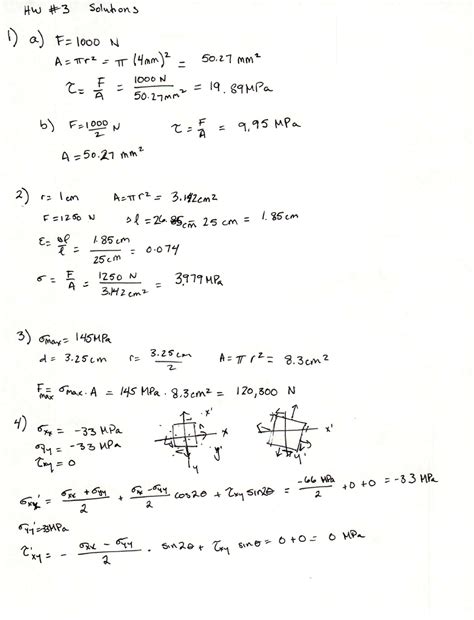 HW #3 Solutions
1) a) F=1000 N
A=πr² = π(4mm)² = 50.27 mm²
τ = F/A = 1000 N / 50.27mm² = 19.89MPa
b) F=1000/2 N τ = F/A = 9.95 MPa
A=50.27 mm²
2) r=1cm A=πr² = 3.142cm2
F=1250 N Δl = 26.85cm - 25 cm = 1.85cm
ε = Δl/l = 1.85cm / 25cm = 0.074
σ = F/A = 1250 N / 3.142 cm² = 3.979 MPa
3) σmax = 145MPa
d = 3.25cm r = 3.25cm / 2 A=πr² = 8.3cm²
Fmax = σmax · A = 145 MPa · 8.3cm² = 120,300 N
4) σxx = -33 MPa
σyy = -33 MPa
τxy = 0
x' x y' y
x' y'
= σxx + σyy / 2 + σxx - σyy / 2 cos2θ + τxy sin2θ = -66 MPa / 2 + 0 + 0 = -33 MPa
τ'xy = - σxx - σyy / 2 · sin2θ + τxy sinθ = 0+0 = 0 MPa